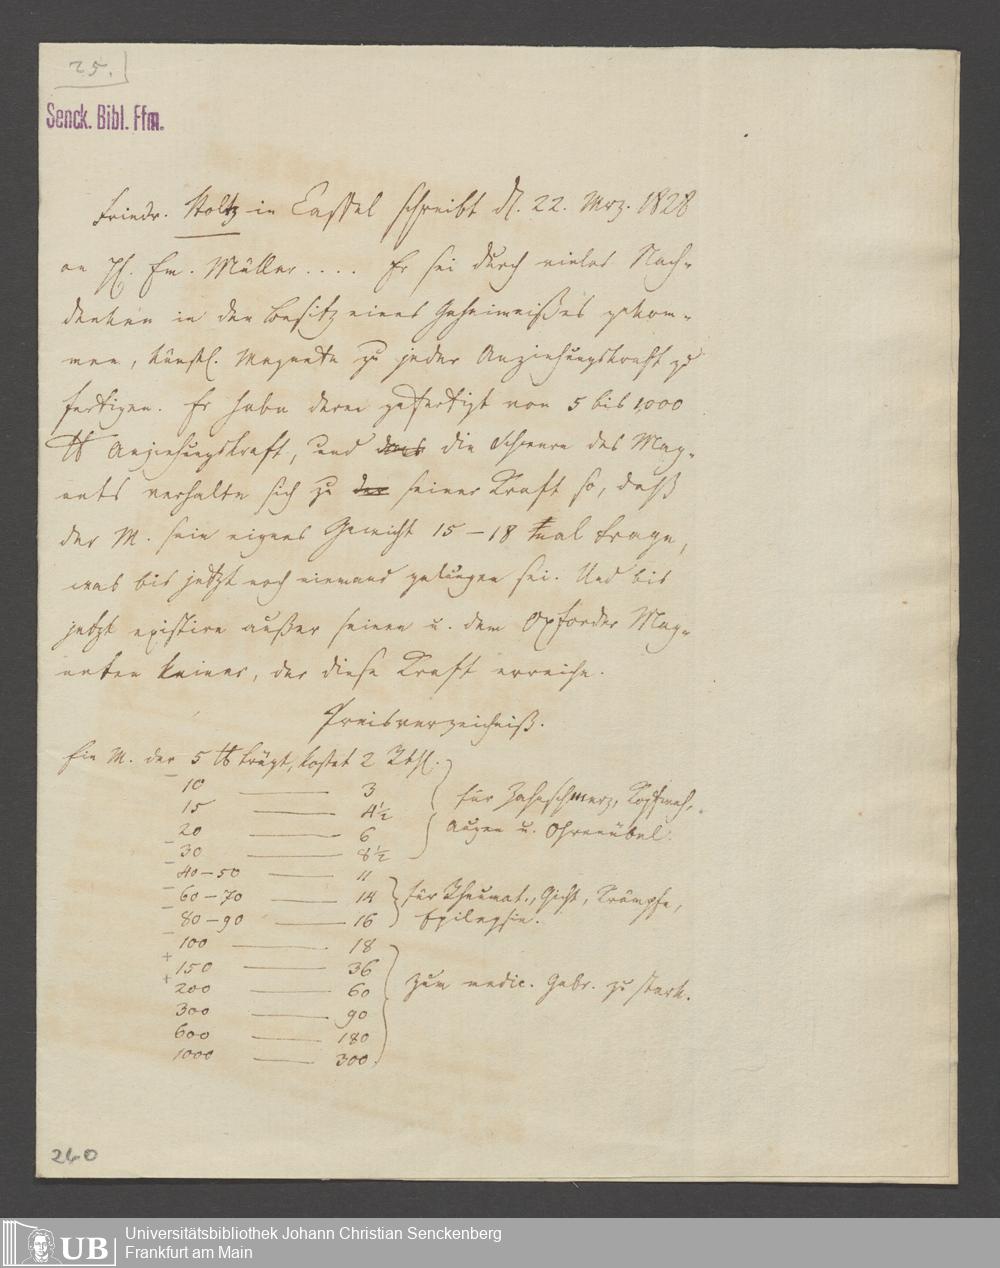 25.
Senck. Bibl. Ffm.
Friedr. Stoltz in Cassel schreibt d. 22. Mrz. 1828
an H. Em. Müller .... Er sei durch vieles Nach-
denken in den Besitz eines Geheimnißes gekom-
men, künstl. Magnete zu jeder Anziehungskraft zu
fertigen. Er habe deren gefertigt von 5 bis 1000
℔ Anziehungskraft, und das die Schwere des Mag-
nets verhalte sich zu der seiner Kraft so, daß
der M. sein eignes Gewicht 15–18 mal trage,
was bis jetzt noch niemand gelungen sei. Und bis
jetzt existire außer seinen u. dem Oxforder Mag-
neten keiner, der diese Kraft erreiche.
Preisverzeichniß.
Ein M. der 5 ℔ trägt, kostet 2 Rthl.
10 — 3
15 — 4½
20 — 6
30 — 8½
für Zahnschmerz, Kopfweh,
Augen u. Ohrenübel.
40–50 — 11
60–70 — 14
80–90 — 16
für Rheumat., Gicht, Krämpfe,
Epilepsie.
100 — 18
150 — 36
200 — 60
300 — 90
600 — 180
1000 — 300
zum medic. Gebr. zu stark.
260
UB
Universitätsbibliothek Johann Christian Senckenberg
Frankfurt am Main